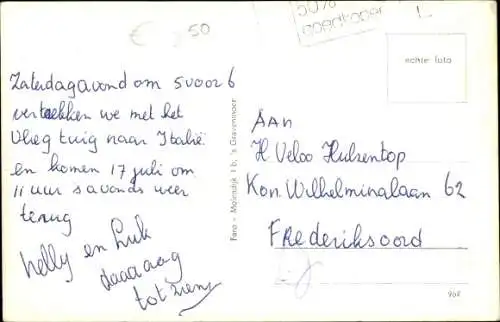 € 250
50%
goedkoper
L.
echte foto
Zaterdagavond om 5 voor 6
vertrekken we met het
vliegtuig naar Italië
en komen 17 juli om
11 uur s avonds weer
terug
Nelly en Luk
daaaaag
tot ziens
Fero - Molendijk 1 b, 's Gravenmoer
AAN
H Veloo Hulzentop
Kon. Wilhelminalaan 62
FRederiksoord
967